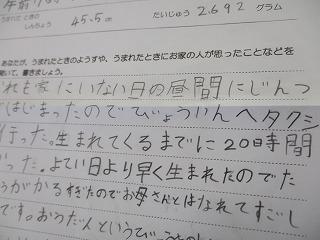 うまれたときの
しんちょう 45.5 cm たいじゅう 2,692 グラム
あなたが、うまれたときのようすや、うまれたときにお家の人が思ったことなどを
聞いて、書きましょう。
れも家にいない日の昼間にじんつ
ではじまったのでびょういんへタクシ
行った。生まれてくるまでに20時間
かった。よてい日より早く生まれたのでた
がかるすぎたのでお母さんとはなれてすごし
です。おうだんという